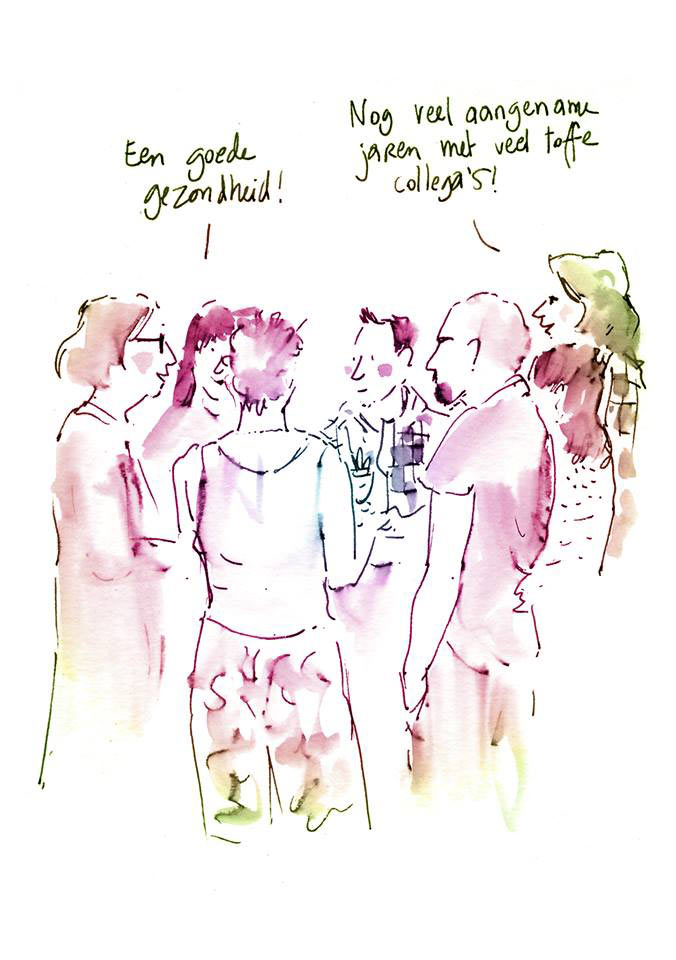 Een goede
gezondheid!
Nog veel aangename
jaren met veel toffe
collega's!